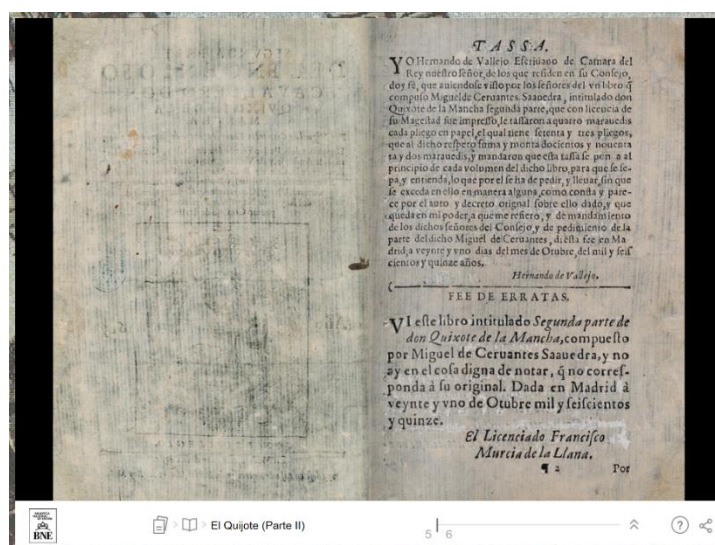 TASSA.
YO Hernando de Vallejo Escriuano de Camara del
Rey nuestro señor, de los que residen en su Consejo,
doy fè, que auiendose visto por los señores del vn libro q̃
compuso Miguel de Ceruantes Saauedra, intitulado don
Quixote de la Mancha segunda parte, que con licencia de
su Magestad fue impresso, le tassaron a quatro marauedis
cada pliego en papel, el qual tiene setenta y tres pliegos,
que al dicho respeto suma y monta docientos y nouenta
ta y dos marauedis, y mandaron que esta tassa se pon a al
principio de cada volumen del dicho libro, para que se se-
pa, y entienda, lo que por el se ha de pedir, y lleuar, sin que
se exceda en ello en manera alguna, como consta y pare-
ce por el auto y decreto original sobre ello dado, y que
queda en mi poder, a que me refiero, y de mandamiento
de los dichos señores del Consejo, y de pedimiento de la
parte del dicho Miguel de Ceruantes, di esta fee en Ma-
drid, a veynte y vno dias del mes de Otubre, del mil y seis
cientos y quinze años.
Hernando de Vallejo.
FEE DE ERRATAS.
VI este libro intitulado Segunda parte de
don Quixote de la Mancha, compuesto
por Miguel de Ceruantes Saauedra, y no
ay en el cosa digna de notar, q̃ no corres-
ponda à su original. Dada en Madrid à
veynte y vno de Otubre mil y seiscientos
y quinze.
El Licenciado Francisco
Murcia de la Llana.
¶ 2 Por
BNE
El Quijote (Parte II)
5 6
?